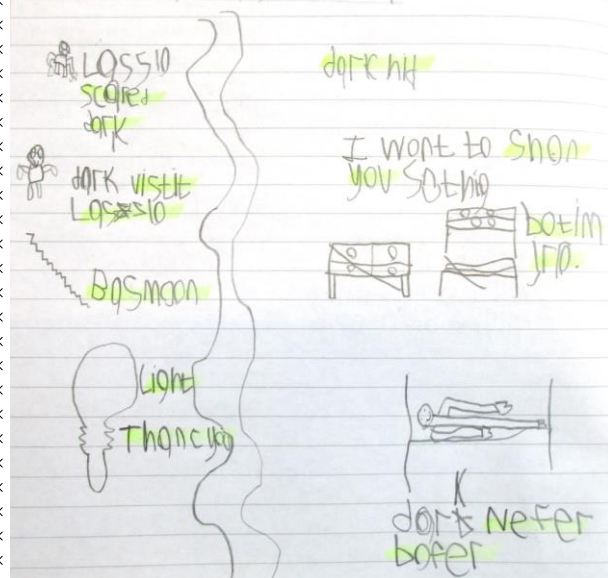 Lassio
scared
dark
dark vistit
Lassio
Basmoon
Light
Thancyoo
dark hid
I wont to Shon
you Sothig
botim
jro.
dark Nefer
bofer